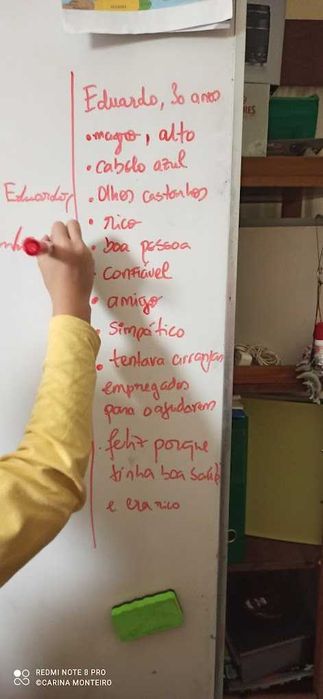 Eduardo, 30 anos
• magro, alto
• cabelo azul
• Olhos castanhos
• rico
• boa pessoa
• confiável
• amigo
• simpático
• tentava arranjar
empregados
para o ajudarem
• feliz porque
tinha boa saúde
e era rico
Eduardo,
REDMI NOTE 8 PRO
©CARINA MONTEIRO